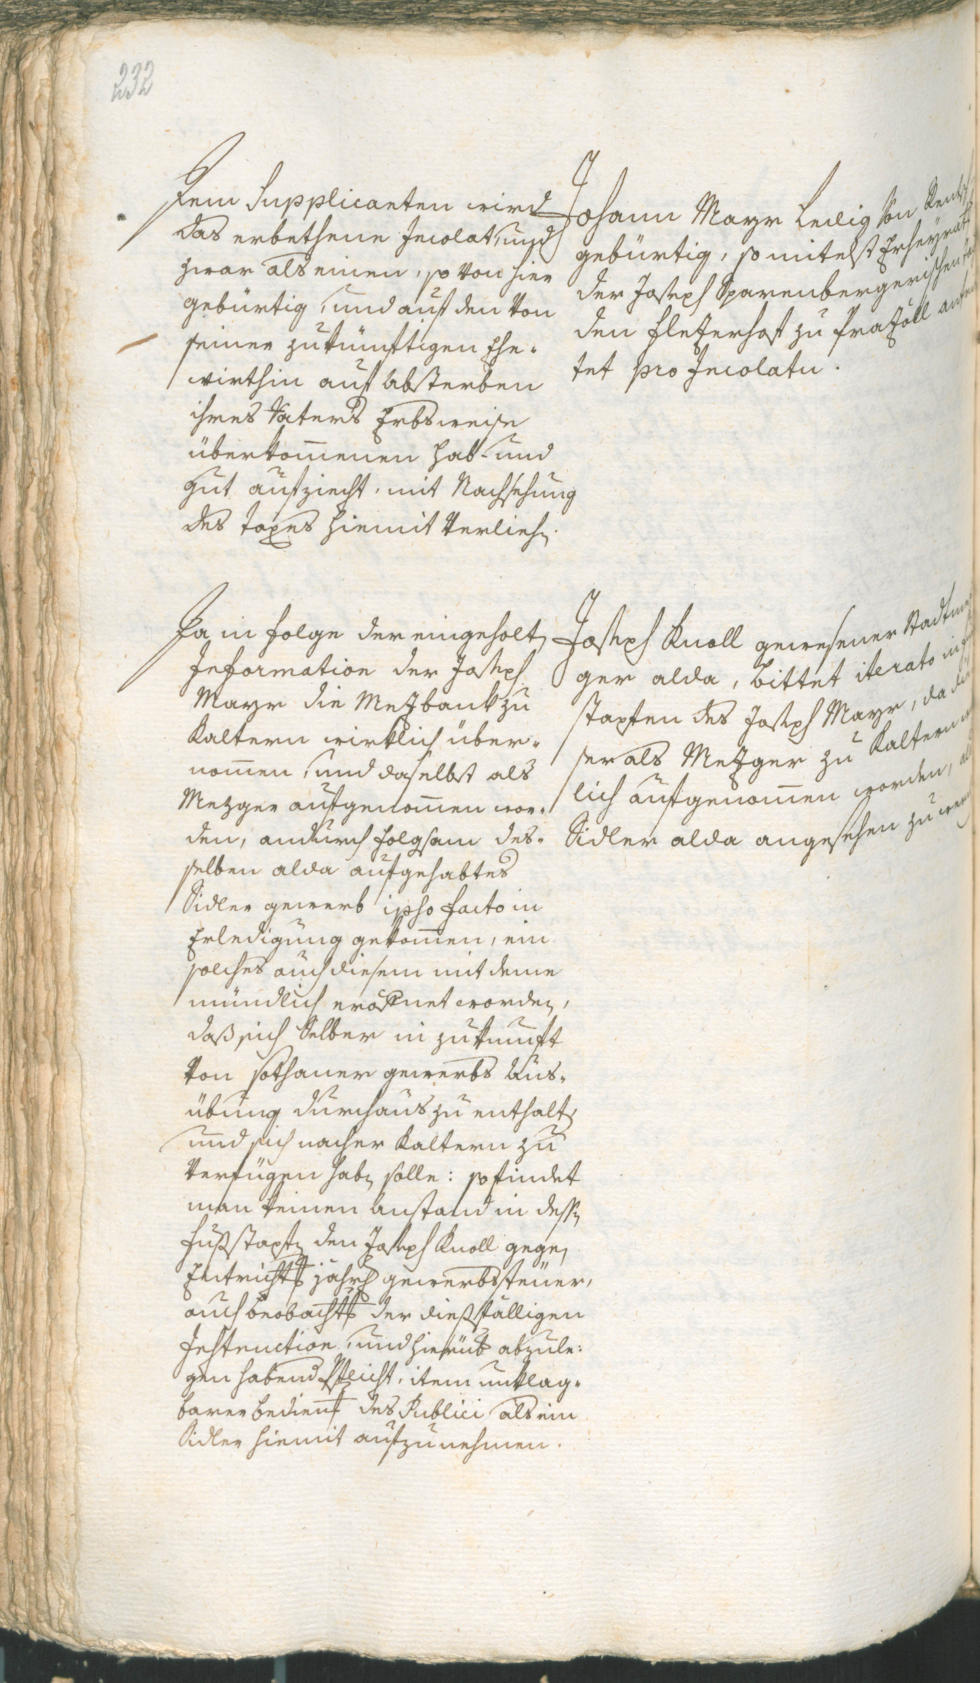 232
Dem Supplicanten wird
das erbethene Incolat, und
zwar als einen, so von hier
gebürtig, und auf den von
seiner zukünftigen Ehe-
wirthin auf absterben
ihres Vaters Erbsweise
überkom̄enen Hab- und
Gut aufziecht, mit Nachsehung
des taxes hiemit verliehen.
Johann Mayr ledig von
gebürtig, so mitelst Erheyrat
der Joseph Sparenbergerischen
den Elezerhof zu Prazöll
tet pro Incolatu.
Da in folge der eingeholten
Information der Joseph
Mayr die Mezbank zu
Kaltern wirklich über-
nom̄en, und daselbst als
Mezger aufgenom̄en wor-
den, andurch folgsam des-
selben alda aufgehabtes
Sidler gewerb ipso facto in
Erledigung gekom̄en, ein
solches auch diesem mit deme
mündlich eröffnet worden,
daß sich Selber in zukunft
von sothaner gewerbs Aus-
übung durchaus zu enthalten
und sich nacher Kaltern zu
verfügen haben solle: so findet
man keinen anstand in dessen
fußstapfen den Joseph Knoll gegen
Entrichtung jährlich gewerbssteuer,
auch beobachtung der dießfälligen
Instruction, und hierüber abzule-
gen habend Pflicht, item unklag-
barer bedienung des Publici als ein
Sidler hiemit aufzunehmen.
Joseph Knoll gewesener Stadtmez
ger alda, bittet iterato in
stapfen des Joseph Mayr, da
ser als Mezger zu Kaltern
lich aufgenom̄en worden,
Sidler alda angesehen zu